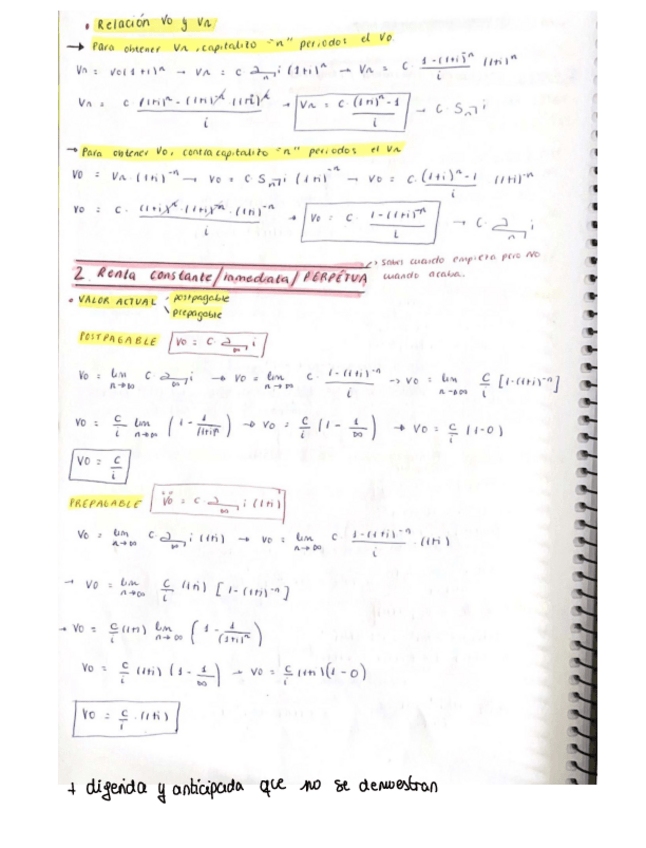 • Relación V0 y Vn
→ Para obtener Vn, capitalizo "n" periodos el V0
Vn = V0(1+i)ⁿ → Vn = C a n⌉ i (1+i)ⁿ → Vn = C · (1-(1+i)⁻ⁿ)/i (1+i)ⁿ
Vn = C (1+i)ⁿ - (1+i)ⁿ (1+i)⁻ⁿ / i → Vn = C · ((1+i)ⁿ - 1)/i → C · S n⌉ i
→ Para obtener V0, contracapitalizo "n" periodos el Vn
V0 = Vn · (1+i)⁻ⁿ → V0 = C S n⌉ i (1+i)⁻ⁿ → V0 = C · ((1+i)ⁿ - 1)/i (1+i)⁻ⁿ
V0 = C · (1+i)ⁿ · (1+i)⁻ⁿ · (1+i)⁻ⁿ / i → V0 = C · (1-(1+i)⁻ⁿ)/i → C · a n⌉ i
2. Renta constante/inmediata/PERPÉTUA → sabes cuando empieza pero NO
cuando acaba.
• VALOR ACTUAL postpagable
prepagable
POSTPAGABLE V0 = C a ∞⌉ i
V0 = lim n→∞ C a ∞⌉ i → V0 = lim n→∞ C · (1-(1+i)⁻ⁿ)/i → V0 = lim n→∞ C/i [1-(1+i)⁻ⁿ]
V0 = C/i lim n→∞ (1 - 1/(1+i)ⁿ) → V0 = C/i (1 - 1/∞) → V0 = C/i (1-0)
V0 = C/i
PREPAGABLE V̈0 = C a ∞⌉ i (1+i)
V0 = lim n→∞ C a ∞⌉ i (1+i) → V0 = lim n→∞ C · (1-(1+i)⁻ⁿ)/i · (1+i)
→ V0 = lim n→∞ C/i (1+i) [1-(1+i)⁻ⁿ]
→ V0 = C/i (1+i) lim n→∞ (1 - 1/(1+i)ⁿ)
V0 = C/i (1+i) (1 - 1/∞) → V0 = C/i (1+i)(1-0)
V0 = C/i · (1+i)
+ digerida y anticipada que no se demuestran